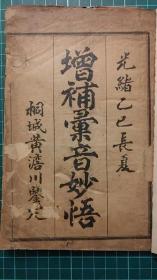 光緒乙巳長夏
增補彙音妙悟
桐城黃澹川鑒定